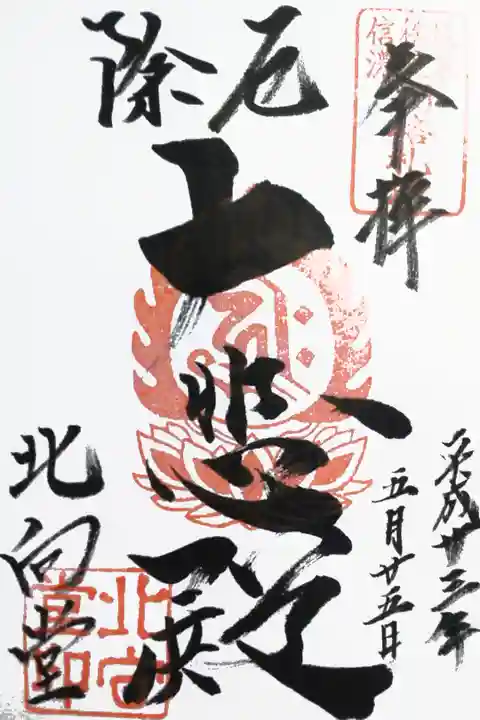 奉拝
平成廿三年
五月廿五日
厄除
大悲殿
北向堂
信濃
北向堂印